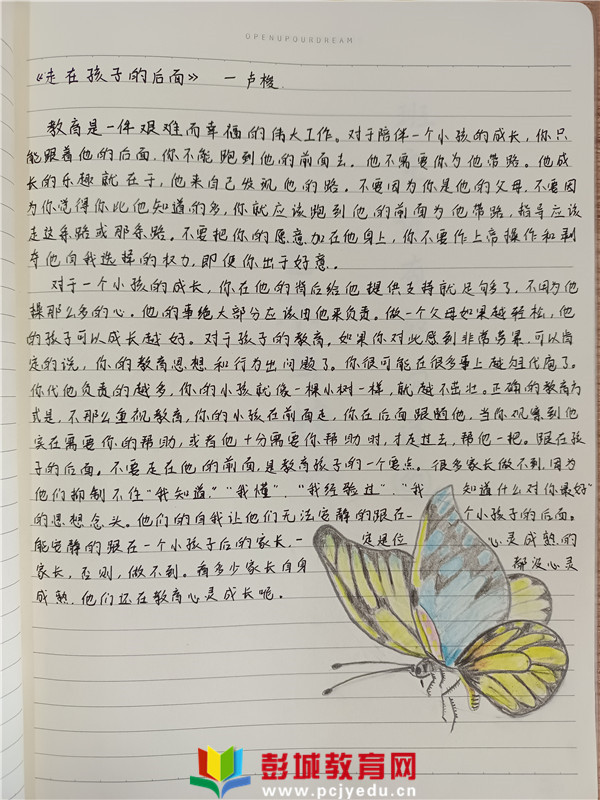 OPENUPOURDREAM
《走在孩子的后面》 —卢梭
教育是一件艰难而幸福的伟大工作。对于陪伴一个小孩的成长，你只
能跟着他的后面，你不能跑到他的前面去。他不需要你为他带路。他成
长的乐趣就在于，他来自己发现他的路。不要因为你是他的父母，不要因
为你觉得你比他知道的多，你就应该跑到他的前面为他带路，指导应该
走这条路或那条路。不要把你的愿意加在他身上，你不要作上帝操作和剥
夺他自我选择的权力，即使你出于好意。
对于一个小孩的成长，你在他的背后给他提供支持就足够了，不因为他
操那么多的心。他的事绝大部分应该由他来负责。做一个父母如果越轻松，他
的孩子可以成长越好。对于孩子的教育，如果你对此感到非常劳累，可以肯
定的说，你的教育思想和行为出问题了。你很可能在很多事上越俎代庖了。
你代他负责的越多，你的小孩就像一棵小树一样，就越不茁壮。正确的教育方
式是，不那么重视教育，你的小孩在前面走，你在后面跟随他，当你观察到他
实在需要你的帮助，或者他十分需要你帮助时，才走过去，帮他一把。跟在孩
子的后面。不要走在他的前面，是教育孩子的一个要点。很多家长做不到，因为
他们抑制不住“我知道，”“我懂”，“我经验过”，“我知道什么对你最好”
的思想念头。他们的自我让他们无法安静的跟在一个小孩子的后面。
能安静的跟在一个小孩子后的家长，一定是位心灵成熟的
家长，否则，做不到。有多少家长自身都没心灵
成熟，他们还在教育心灵成长呢。
彭城教育网
www.pcjyedu.cn